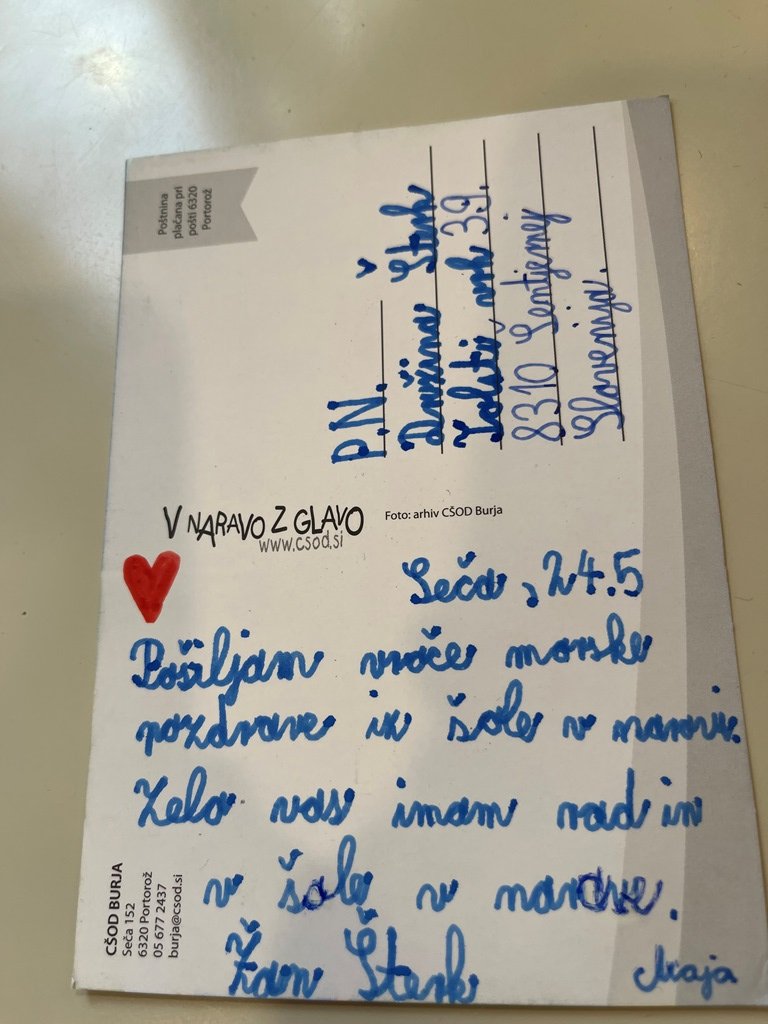 Poštnina
plačana pri
pošti 6320
Portorož
P.N.
Družina Štenk
Tolsti vrh 39.
8310 Šentjernej
Slovenija.
V NARAVO Z GLAVO
www.csod.si
Foto: arhiv CŠOD Burja
Seča, 24.5
Pošiljam vroče morske
pozdrave iz šole v naravi.
Zelo vas imam rad in
v šole v narave.
Žan Štenk
Maja
CŠOD BURJA
Seča 152
6320 Portorož
05 677 2437
burja@csod.si